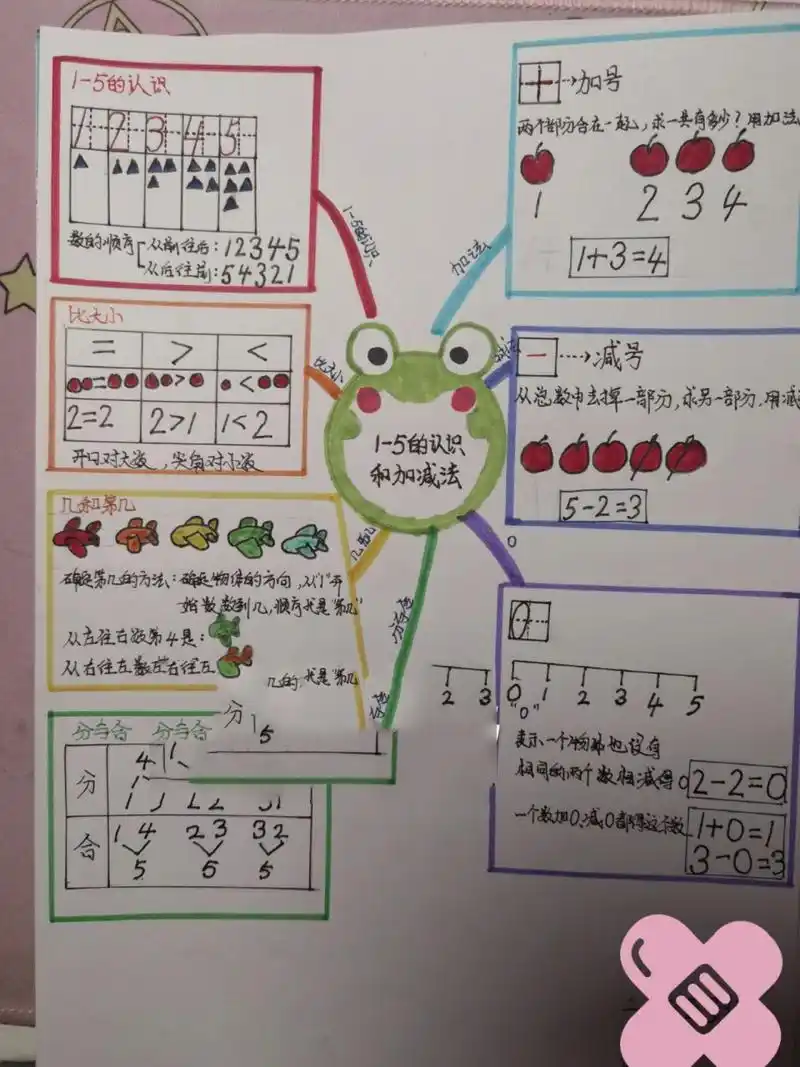 1-5的认识
1 2 3 4 5
数的顺序 从前往后：12345
从后往前：54321
1-5的认识
比大小
= > <
= > <
2=2 2>1 1<2
开口对大数，尖角对小数
比大小
几和第几
确定第几的方法：确定物体的方向，从"1"开
始数，数到几，顺序就是"第几"
从左往右数第4是：
从右往左数左右往左
几的，就是"第几
分与合 分与合
分 4
分 5
合 1 4 2 3 3 2
5 5 5
分与合
1-5的认识
和加减法
加法
+ 加号
两个部分合在一起，求一共有多少？用加法
1 2 3 4
1+3=4
减法
- 减号
从总数中去掉一部分，求另一部分，用减
5-2=3
0
0
2 3 0 1 2 3 4 5
"0"
表示一个物品也没有
相同的两个数相减得0 2-2=0
一个数加0、减0都得这个数 1+0=1
3-0=3